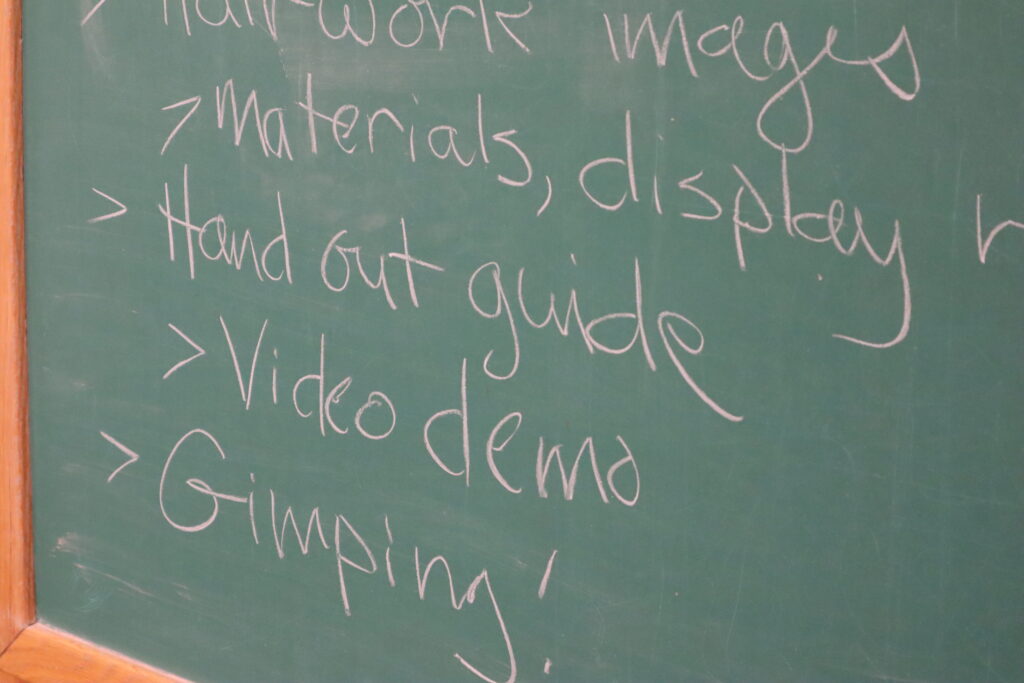 > Hair-work images
> Materials, display
> Hand out guide
> Video demo
> Gimping!